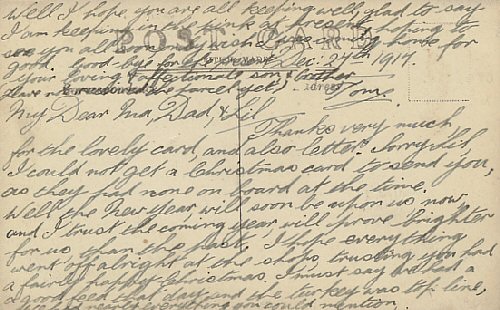 Well I hope you are all keeping well, glad to say
I am keeping in the pink at present, hoping to
see you all soon,
good. Good-bye for Dec. 27th 1917.
POST CARD
Your loving & affectionate son & brother
Have not received the parcel yet. Tom.
My Dear Ma, Dad, & Lil
Thanks very much
for the lovely card, and also letter. Sorry Lil,
I could not get a Christmas card to send you,
as they had none on board at the time.
Well the New Year will soon be upon us now,
and I trust the coming year will prove brighter
for us than the past. I hope everything
went off alright at the shop, trusting you had
a fairly happy Christmas. I must say we had a
a good feed that day and the turkey was top line,
nearly everything you could mention.